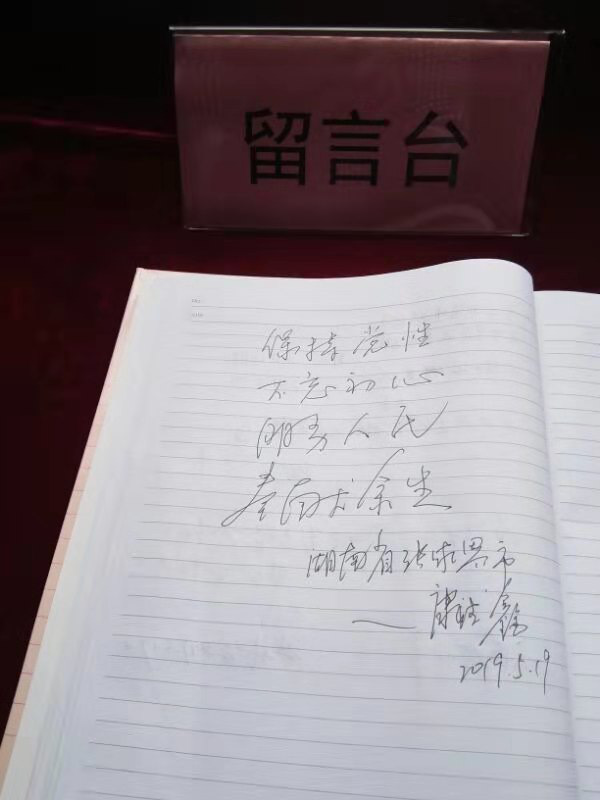 留言台
保持党性
不忘初心
服务人民
奉献余生
湖南省张家界市
2019.5.19